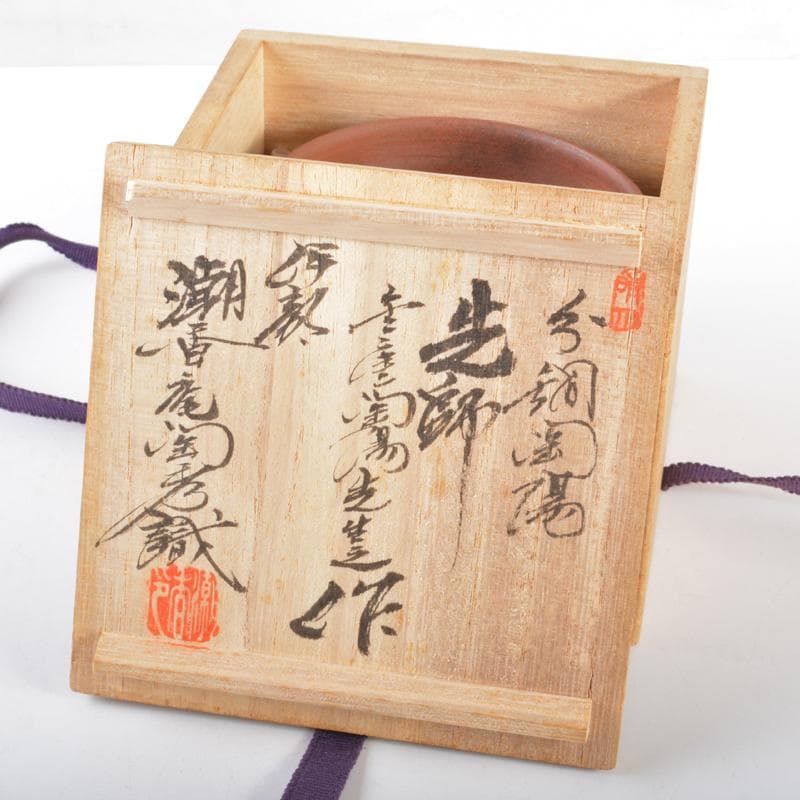 分銅陶陽
先師
金重陶陽先生作
潮香庵陶秀識